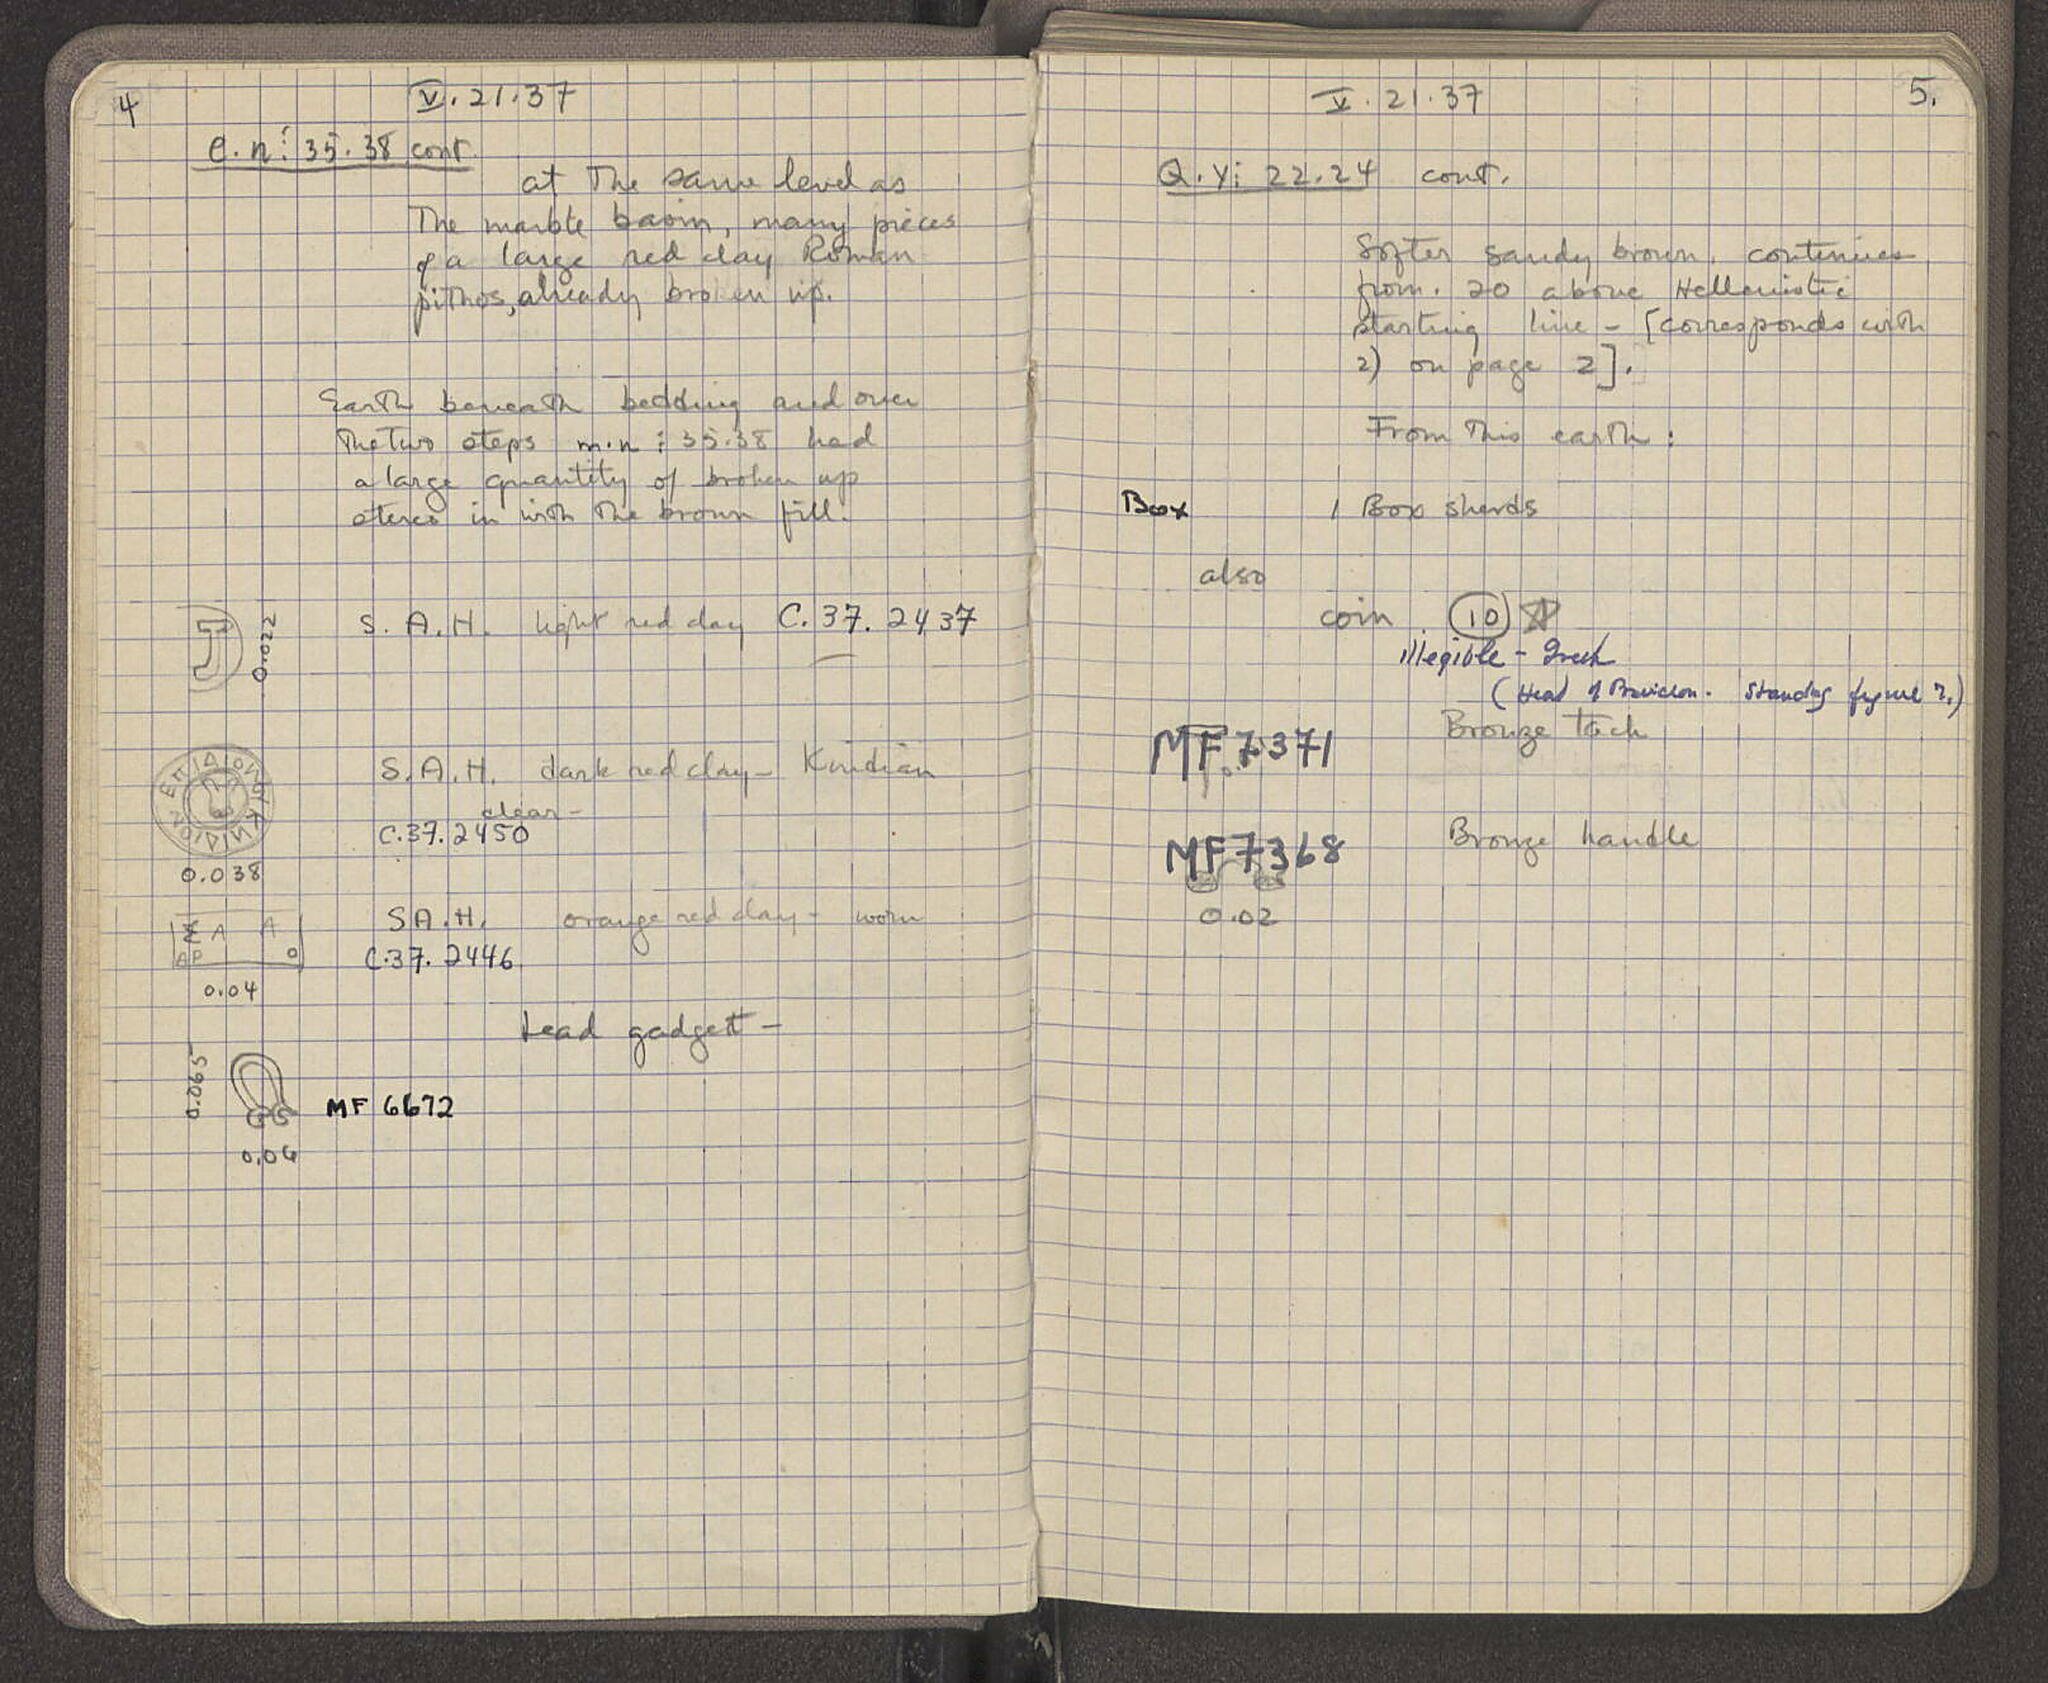 4
V.21.37
e.n: 35.38 cont.
at the same level as
the marble basin, many pieces
of a large red clay Roman
pithos, already broken up.
Earth beneath bedding and over
the two steps m.n: 35.38 had
a large quantity of broken up
stereo in with the brown fill.
0.022
S.A.H. light red clay C.37.2437
S.A.H. dark red clay - Knidian
clear -
C.37.2450
0.038
Σ A A
AP O
S.A.H. orange red clay - worn
C.37.2446
0.04
Lead gadget -
0.065
MF 6672
0.06
V.21.37
5.
Q.Y: 22.24 cont.
Softer sandy brown. continues
from .20 above Hellenistic
starting line - [corresponds with
2) on page 2].
From this earth:
Box 1 Box sherds
also
coin 10
illegible - Greek
(Head of Poseidon. Standing figure ?.)
MF 7371 Bronze tack
MF 7368 Bronze handle
0.02